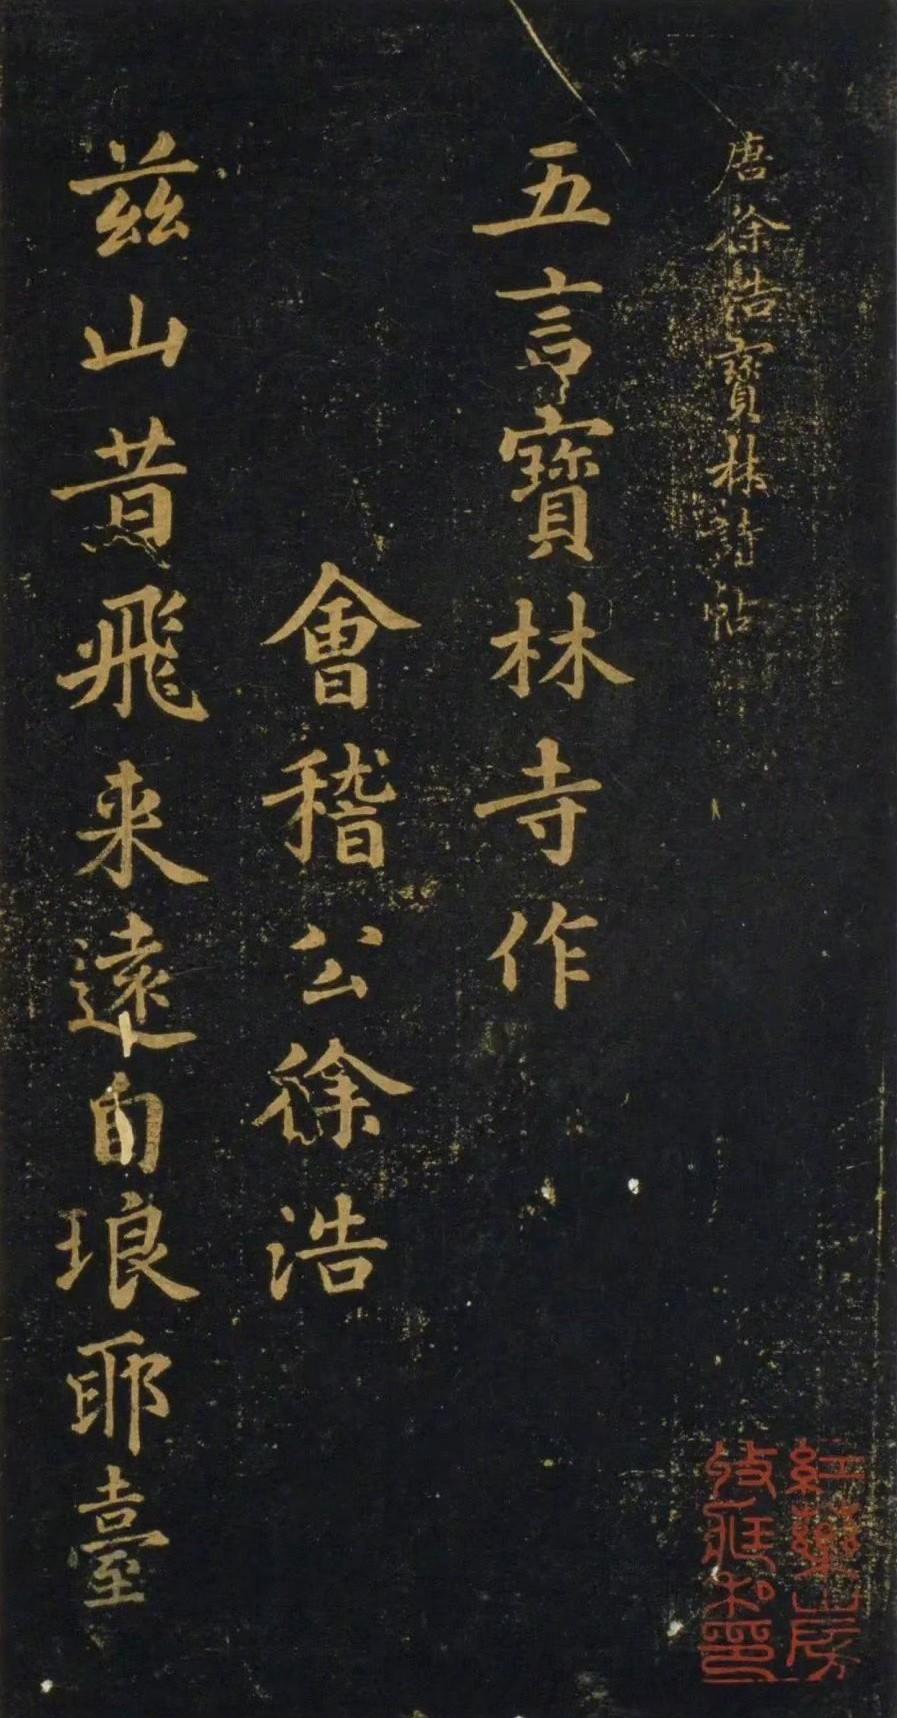 唐徐浩寳林詩帖
五言寶林寺作
會稽公徐浩
茲山昔飛来遠自琅耶臺
紅藥山房
收藏私印